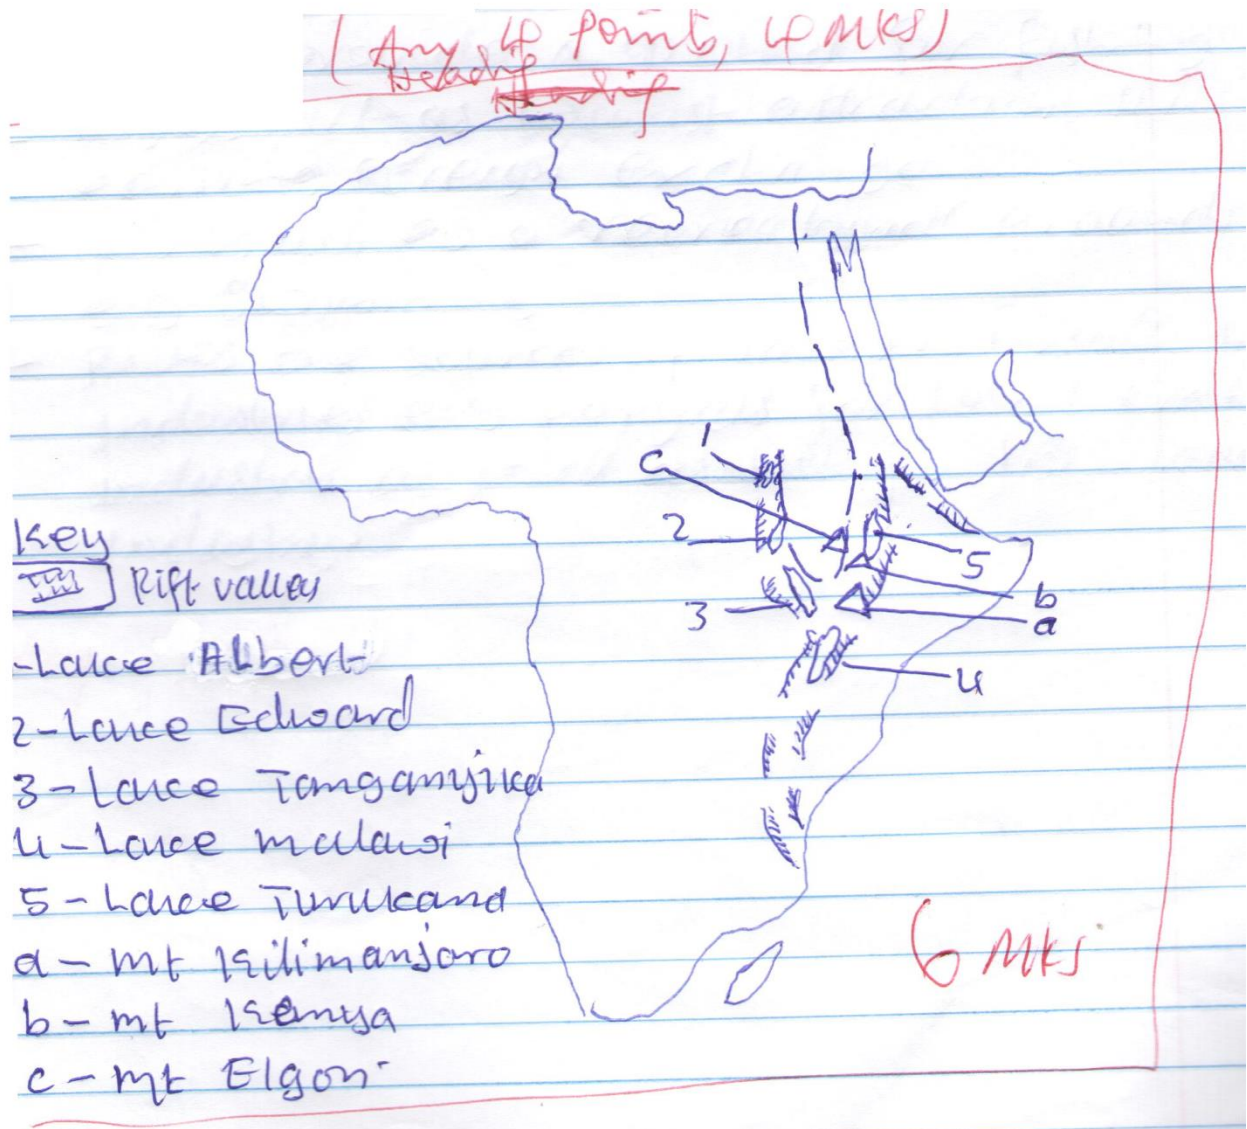 (Any 4 points, 4 mks)
Heading
Heading
1
c
2
5
3
b
a
4
Key
Rift valley
-Lake Albert
2-Lake Edward
3-Lake Tanganyika
4-Lake malawi
5-Lake Turukana
a-mt Kilimanjaro
b-mt Kenya
c-mt Elgon
6 mks